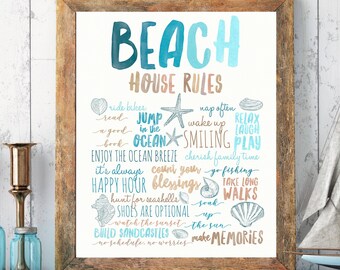 BEACH
HOUSE RULES
ride bikes
read
a good
book
JUMP
in the
OCEAN
nap often
wake up
SMILING
RELAX
LAUGH
PLAY
ENJOY THE OCEAN BREEZE
cherish family time
it's always
HAPPY HOUR
count your
blessings
go fishing
TAKE LONG
WALKS
hunt for seashells
SHOES ARE OPTIONAL
watch the sunset
soak
up
the sun
BUILD SANDCASTLES
no schedule, no worries
make MEMORIES